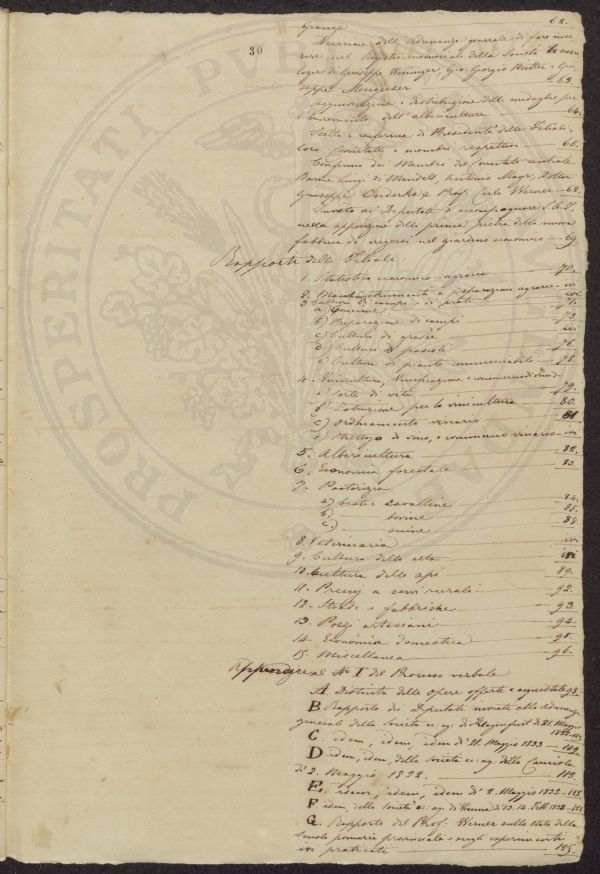 30
62.
Decisione dell'adunanza generale di fare inse
rire nel Registro memoriale della Società le neco
logie di Giuseppe Wininger, Gio. Giorgio e Giu
seppe 63.
e distribuzione delle medaglie per
l'incremento dell'albericultura 64.
Scelta e conferma di Presidente delle Filiali,
loro e membri rispettivi 65.
Conferma dei Membri del Comitato centrale
Barone Luigi di Mandell, Antonio Mayr, Dottor
Giuseppe e Prof. Carlo Werner 68.
Invito ai Deputati di accompagnare S.A.I.
nella apposizione della prima pietra della nuova
fabbrica da erigersi nel giardino economico 69.
Rapporti delle Filiali
1. Statistica economico-agraria 70.
2. e preparazioni agrarie ivi
3. Cultura di campi e di prati 71.
a) Concime
b) Preparazione di campi 73.
c) Cultura di grasce ivi
d) Cultura di pascoli 76.
e) Cultura di piante commerciabili 78.
4. Vinicultura, Vinificazione e commercio di vino
a) Sorte di vite 79.
b) Istruzione per la vinicultura 80.
c) vinario 81
d) di vino, e commercio vinario ivi
5. Albericultura 82.
6. Economia forestale 83.
7. Pastorizia
a) bestie cavalline 84.
b) — bovine 85.
c) — suine 88.
8. Veterinaria ivi
9. Cultura della seta ivi
10. Cultura delle api 89.
11. Premj a servi rurali 92.
12. Strade e fabbriche 93.
13. Pozzi artesiani 94.
14. Economia domestica 95.
15. Miscellanea 96.
Appendice al No I del Processo verbale
A. Distinta delle opere offerte e acquistate 98.
B Rapporto dei Deputati inviati alle Adunanze
generali della Società ec: ag. di Klagenfurt di 21. Maggio
1832
C. idem, idem, idem di 21. Maggio 1833 — 109.
D idem, idem, della Società ec: ag. della Carniola
di 2. Maggio 1832. 113.
E. idem, idem, idem di 2. Maggio 1832
F idem, della Società ec: ag. di Vienna di 13. 14.
G. Rapporto del Prof. Werner sullo stato della
Scuola pomaria provinciale e sugli esperimenti
ivi praticati 125.
PROSPERITATI PUBLICAE